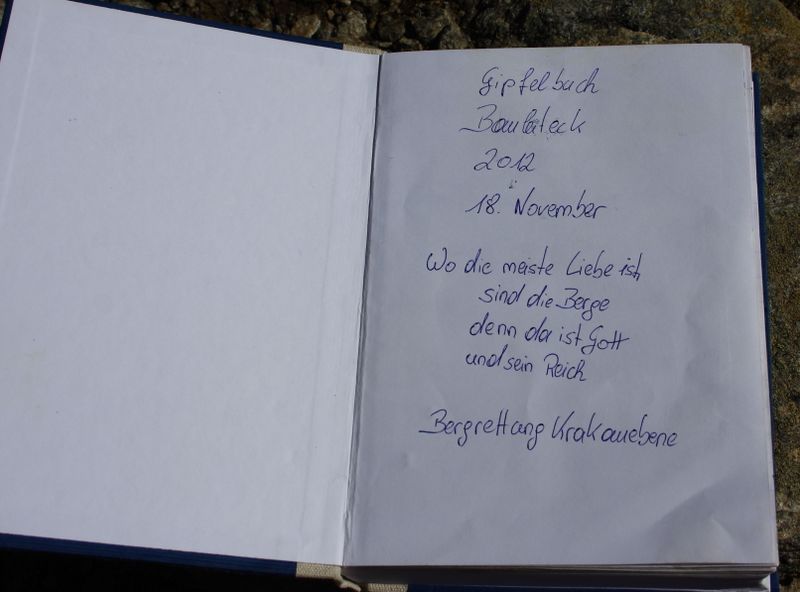 Gipfelbuch
Bauleiteck
2012
18. November
Wo die meiste Liebe ist
sind die Berge
denn da ist Gott
und sein Reich
Bergrettung Krakauebene